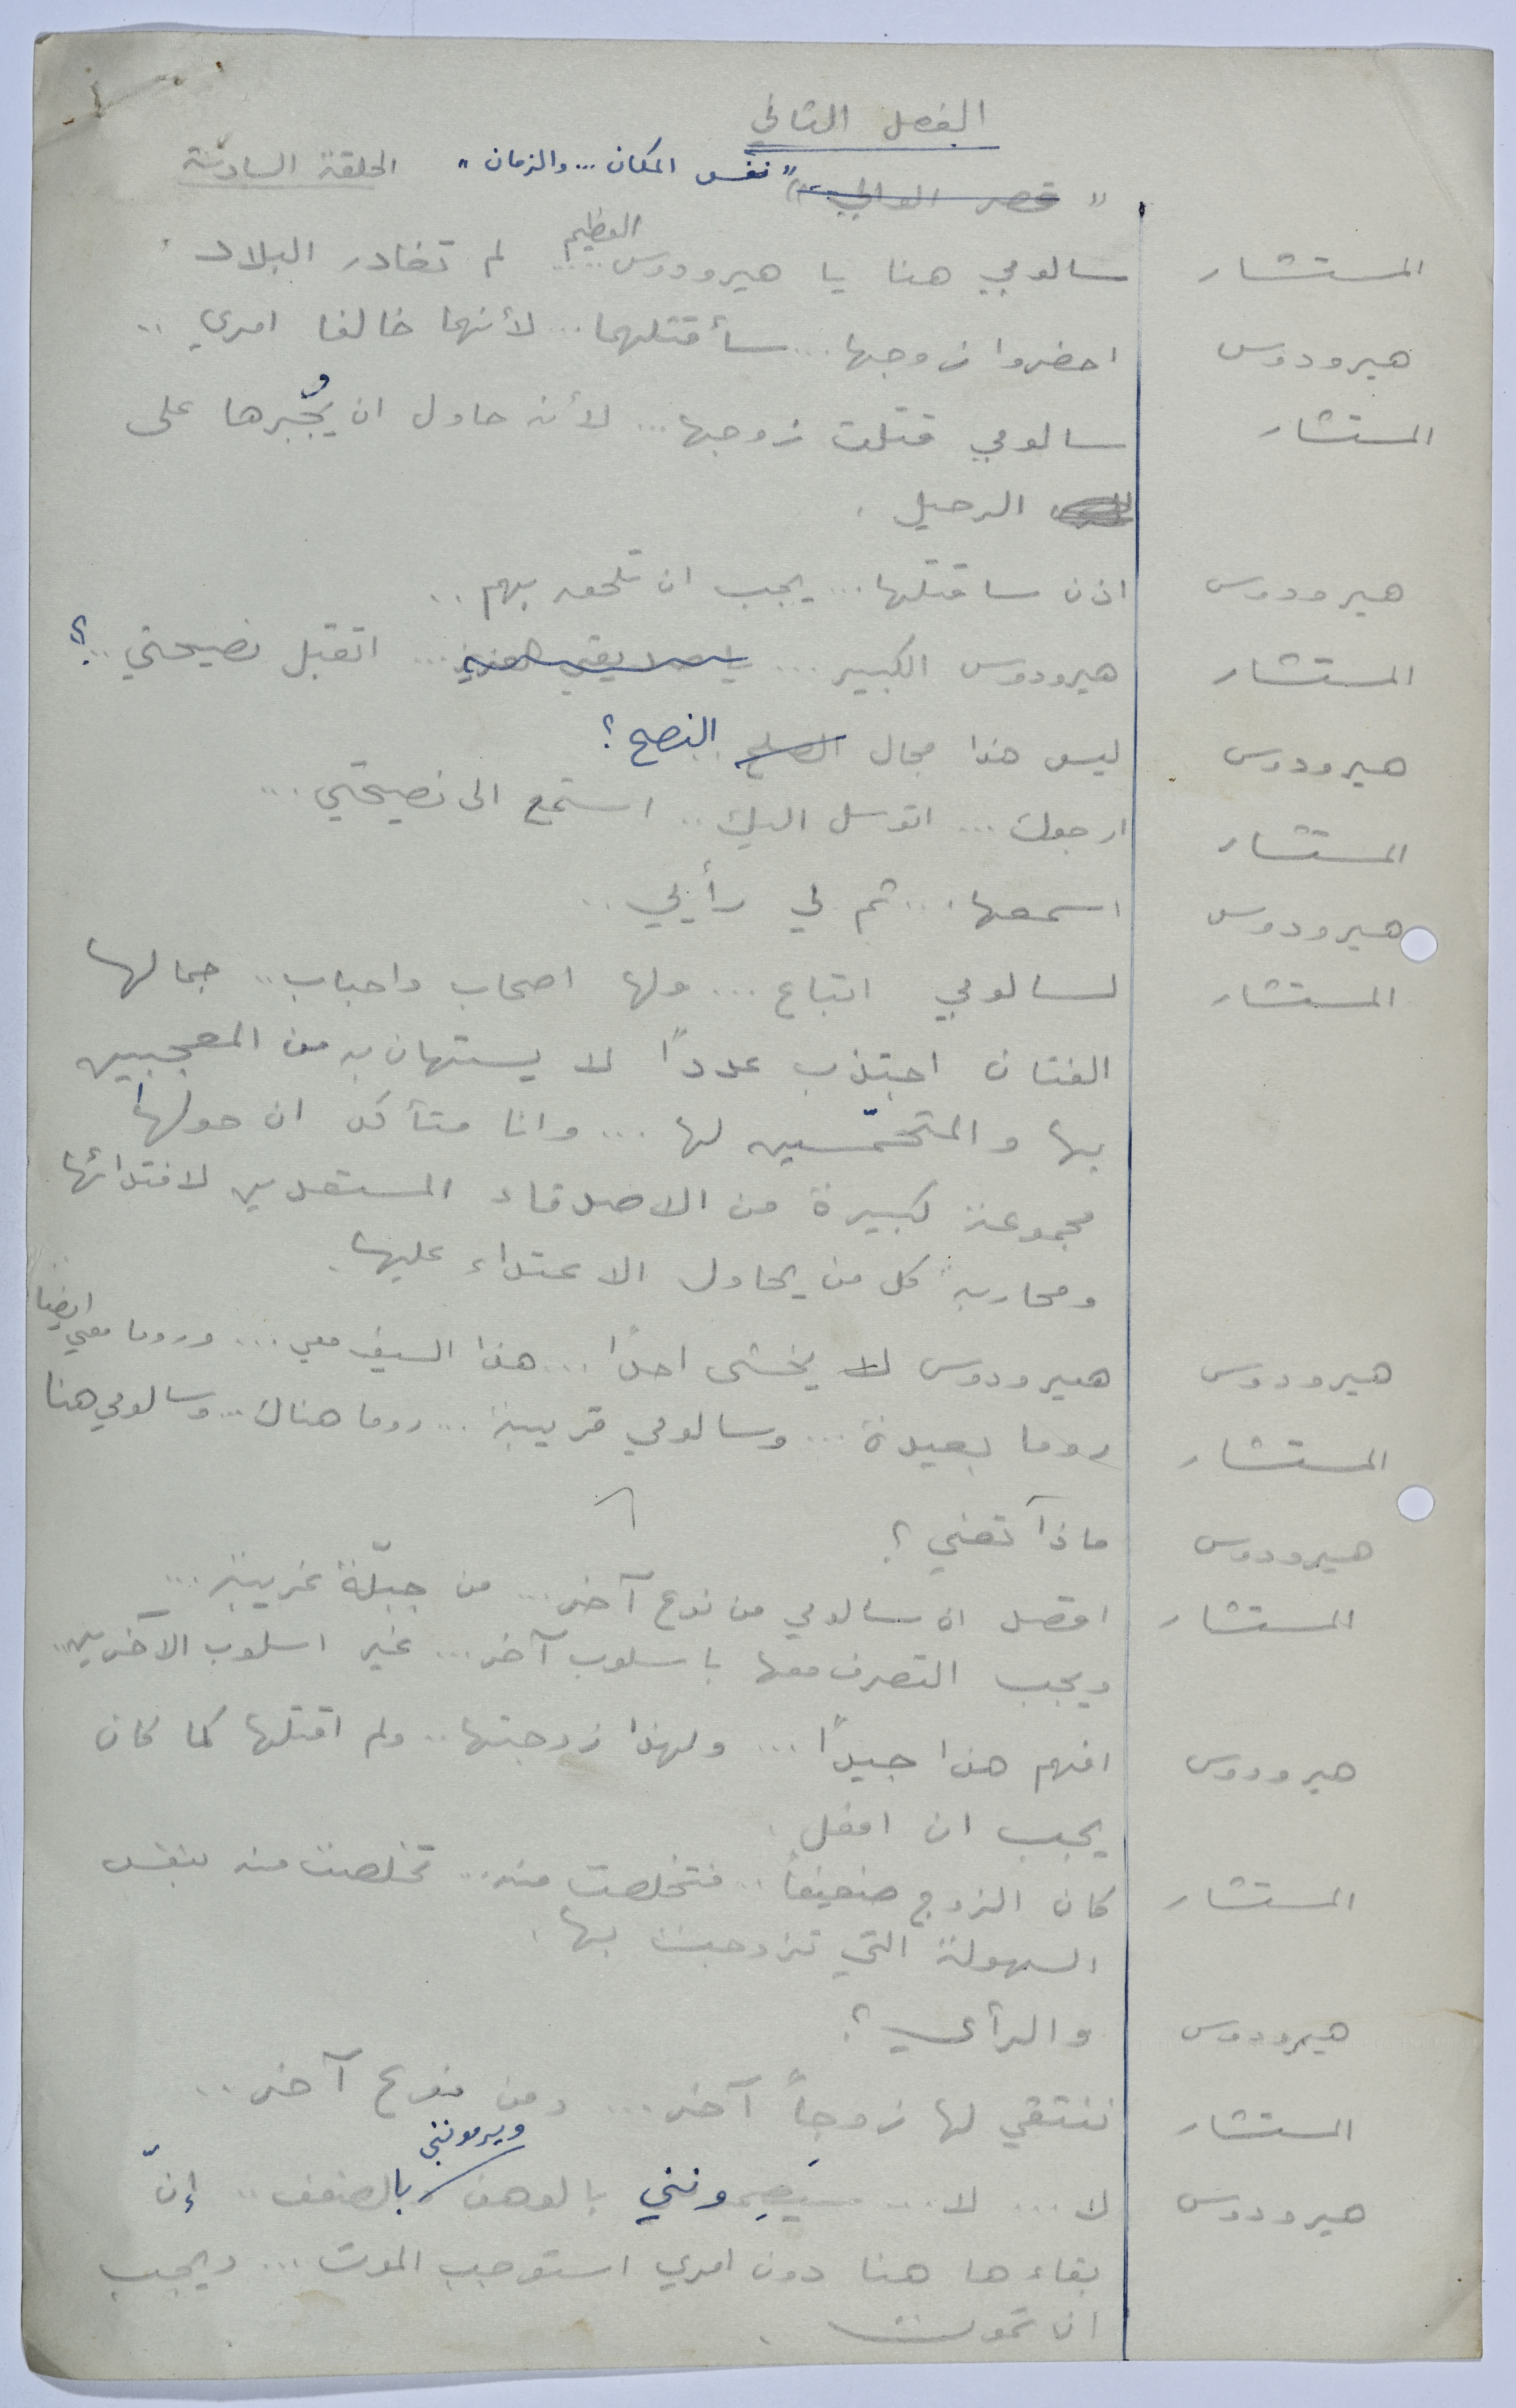 الفصل الثاني
" قصر الوالي " " نفس المكان ... والزمان " الحلقة السادسة
المستشار سالومي هنا يا هيرودوس العظيم .... لم تغادر البلاد .
هيرودوس احضروا زوجها ... سأقتلهما ... لأنهما خالفا امري ..
المستشار سالومي قتلت زوجها ... لأنه حاول ان يُجْبرها على
الرحيل .
هيرودوس اذن ساقتلها ... يجب ان تلحق بهم ..
المستشار هيرودوس الكبير ... يا صديقي العزيز ... اتقبل نصيحتي ..؟
هيرودوس ليس هذا مجال الصلح النصح ؟
المستشار ارجوك ... اتوسل اليك .. استمع الى نصيحتي ...
هيرودوس اسمعها ... ثم لي رأيي ..
المستشار لسالومي اتباع ... ولها اصحاب واحباب .. جمالها
الفتان اجتذب عدداً لا يستهان به من المعجبين
بها والمتحمّسين لها ... وانا متأكد ان حولها
مجموعة كبيرة من الاصدقاء المستعدين لافتدائها
ومحاربة كل من يحاول الاعتداء عليها .
هيرودوس هيرودوس لا يخشى احداً ... هذا السيف معي ... وروما معي ايضا
المستشار روما بعيدة ... وسالومي قريبة ... روما هناك ... وسالومي هنا
هيرودوس ماذا تعني ؟
المستشار اقصد ان سالومي من نوع آخر ... من جبلّة غريبة ...
ويجب التصرف معها باسلوب آخر ... غير اسلوب الآخرين ..
هيرودوس افهم هذا جيداً ... ولهذا زوجتها .. ولم اقتلها كما كان
يجب ان افعل .
المستشار كان الزوج ضعيفاً .. فتخلصت منه .. تخلصت منه بنفس
السهولة التي تزوجت بها .
هيرودوس والرأي ؟
المستشار ننتقي لها زوجاً آخر ... ومن نوع آخر ..
هيرودوس لا ... لا ... سيَصِمونني بالوهن ويرمونني بالضعف .. إنّ
بقاءها هنا دون امري استوجب الموت ... ويجب
ان تموت .